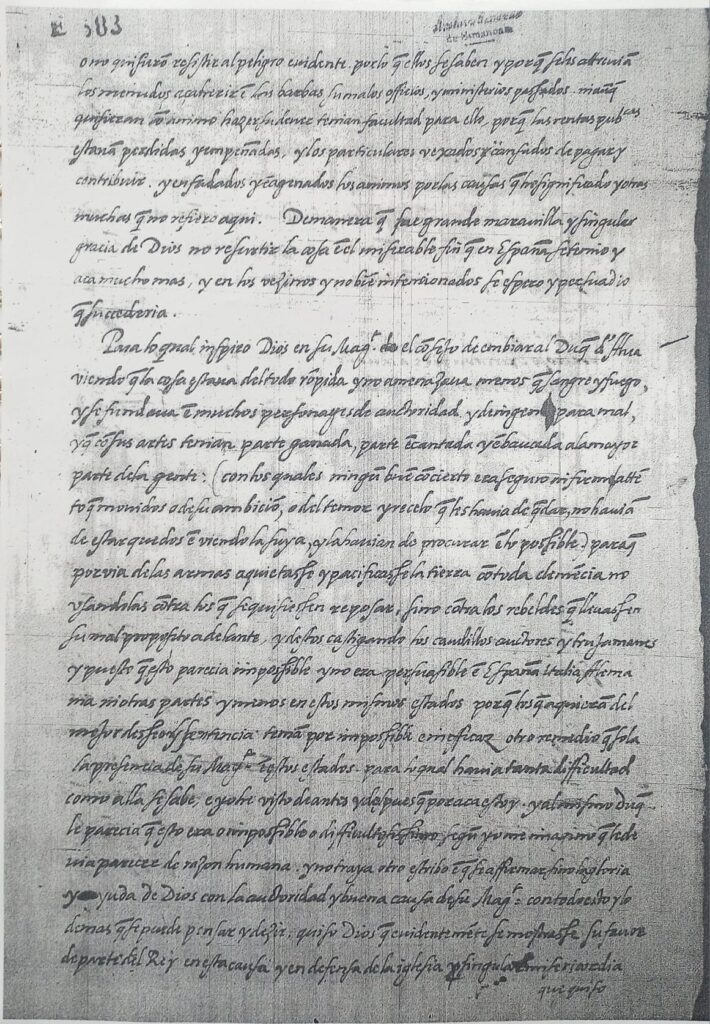 E 583
o no quisierō resistir al peligro evidente por lo q̄ ellos se sabē y porq̄
los menudos a las barbas su malos officios, y ministerios passados
quisieran cō animo hazer su dever tenian facultad para ello, porq̄ las rentas pubcas
estavā perdidas y empeñadas, y los particulares vexados y cansados de pagar y
contribuir. y enfadados y ēagenados los animos por las causas q̄ he significado y otras
muchas q̄ no refiero aqui. De manera q̄ fue grande maravilla y singular
gracia de Dios no resurtir la cosa ē el miserable fin q̄ en España se temio y
aca mucho mas, y en los vezinos y no biē intencionados se espero y persuadio
q̄ succederia.
Para lo qual inspiro Dios en su Magt. el cōsejo de embiar al Duq̄ d' Alva
viendo q̄ la cosa estava del todo rōpida y no amenazava menos q̄ sangre y fuego,
y se fundava ē muchos personages de auctoridad y de ingenio para mal,
y q̄ cō sus artes tenian parte ganada, parte ēcantada y ēbaucada a la mayor
parte de la gente: (con los quales ningū buē cōcierto era seguro ni firme
to q̄ movidos o de su ambiciō, o del temor y recelo q̄ les havia de q̄dar, no haviā
de estar quedos ē viendo la suya, y la havian de procurar ē lo possible) paraq̄
por via de las armas aquietasse y pacificasse la tierra cō toda clemēcia no
usandolas cōtra los q̄ se quisiessen reposar, sino cōtra los rebeldes q̄ llevassen
su mal proposito adelante, y destos castigando los caudillos auctores y trujamanes
y puesto q̄ esto parecia impossible y no era persuasible ē España Italia Alema
nia ni otras partes y menos en estos mismos estados porq̄ los q̄ aquiē eran del
mejor desseo y sentencia tenian por impossible e inefficaz otro remedio q̄ sola
la presencia de su Magt. ē estos estados. para lo qual havia tanta difficultad
como alla se sabe, e yo he visto de antes y despues q̄ por aca estoy. y al mismo Duq̄
le parecia q̄ esto era o impossible o difficultosissimo segū yo me imagino q̄ le de
via parecer de razon humana. y no traya otro estribo ē q̄ se affirmar sino la gloria
y ayuda de Dios con la auctoridad y buena causa de su Magt. con todo esto y lo
demas q̄ se puede pensar y dezir: quiso Dios q̄ evidentemēte se mostrasse su favor
de parte del Rey en esta causa y en defensa de la iglesia y singular misericordia
que quiso